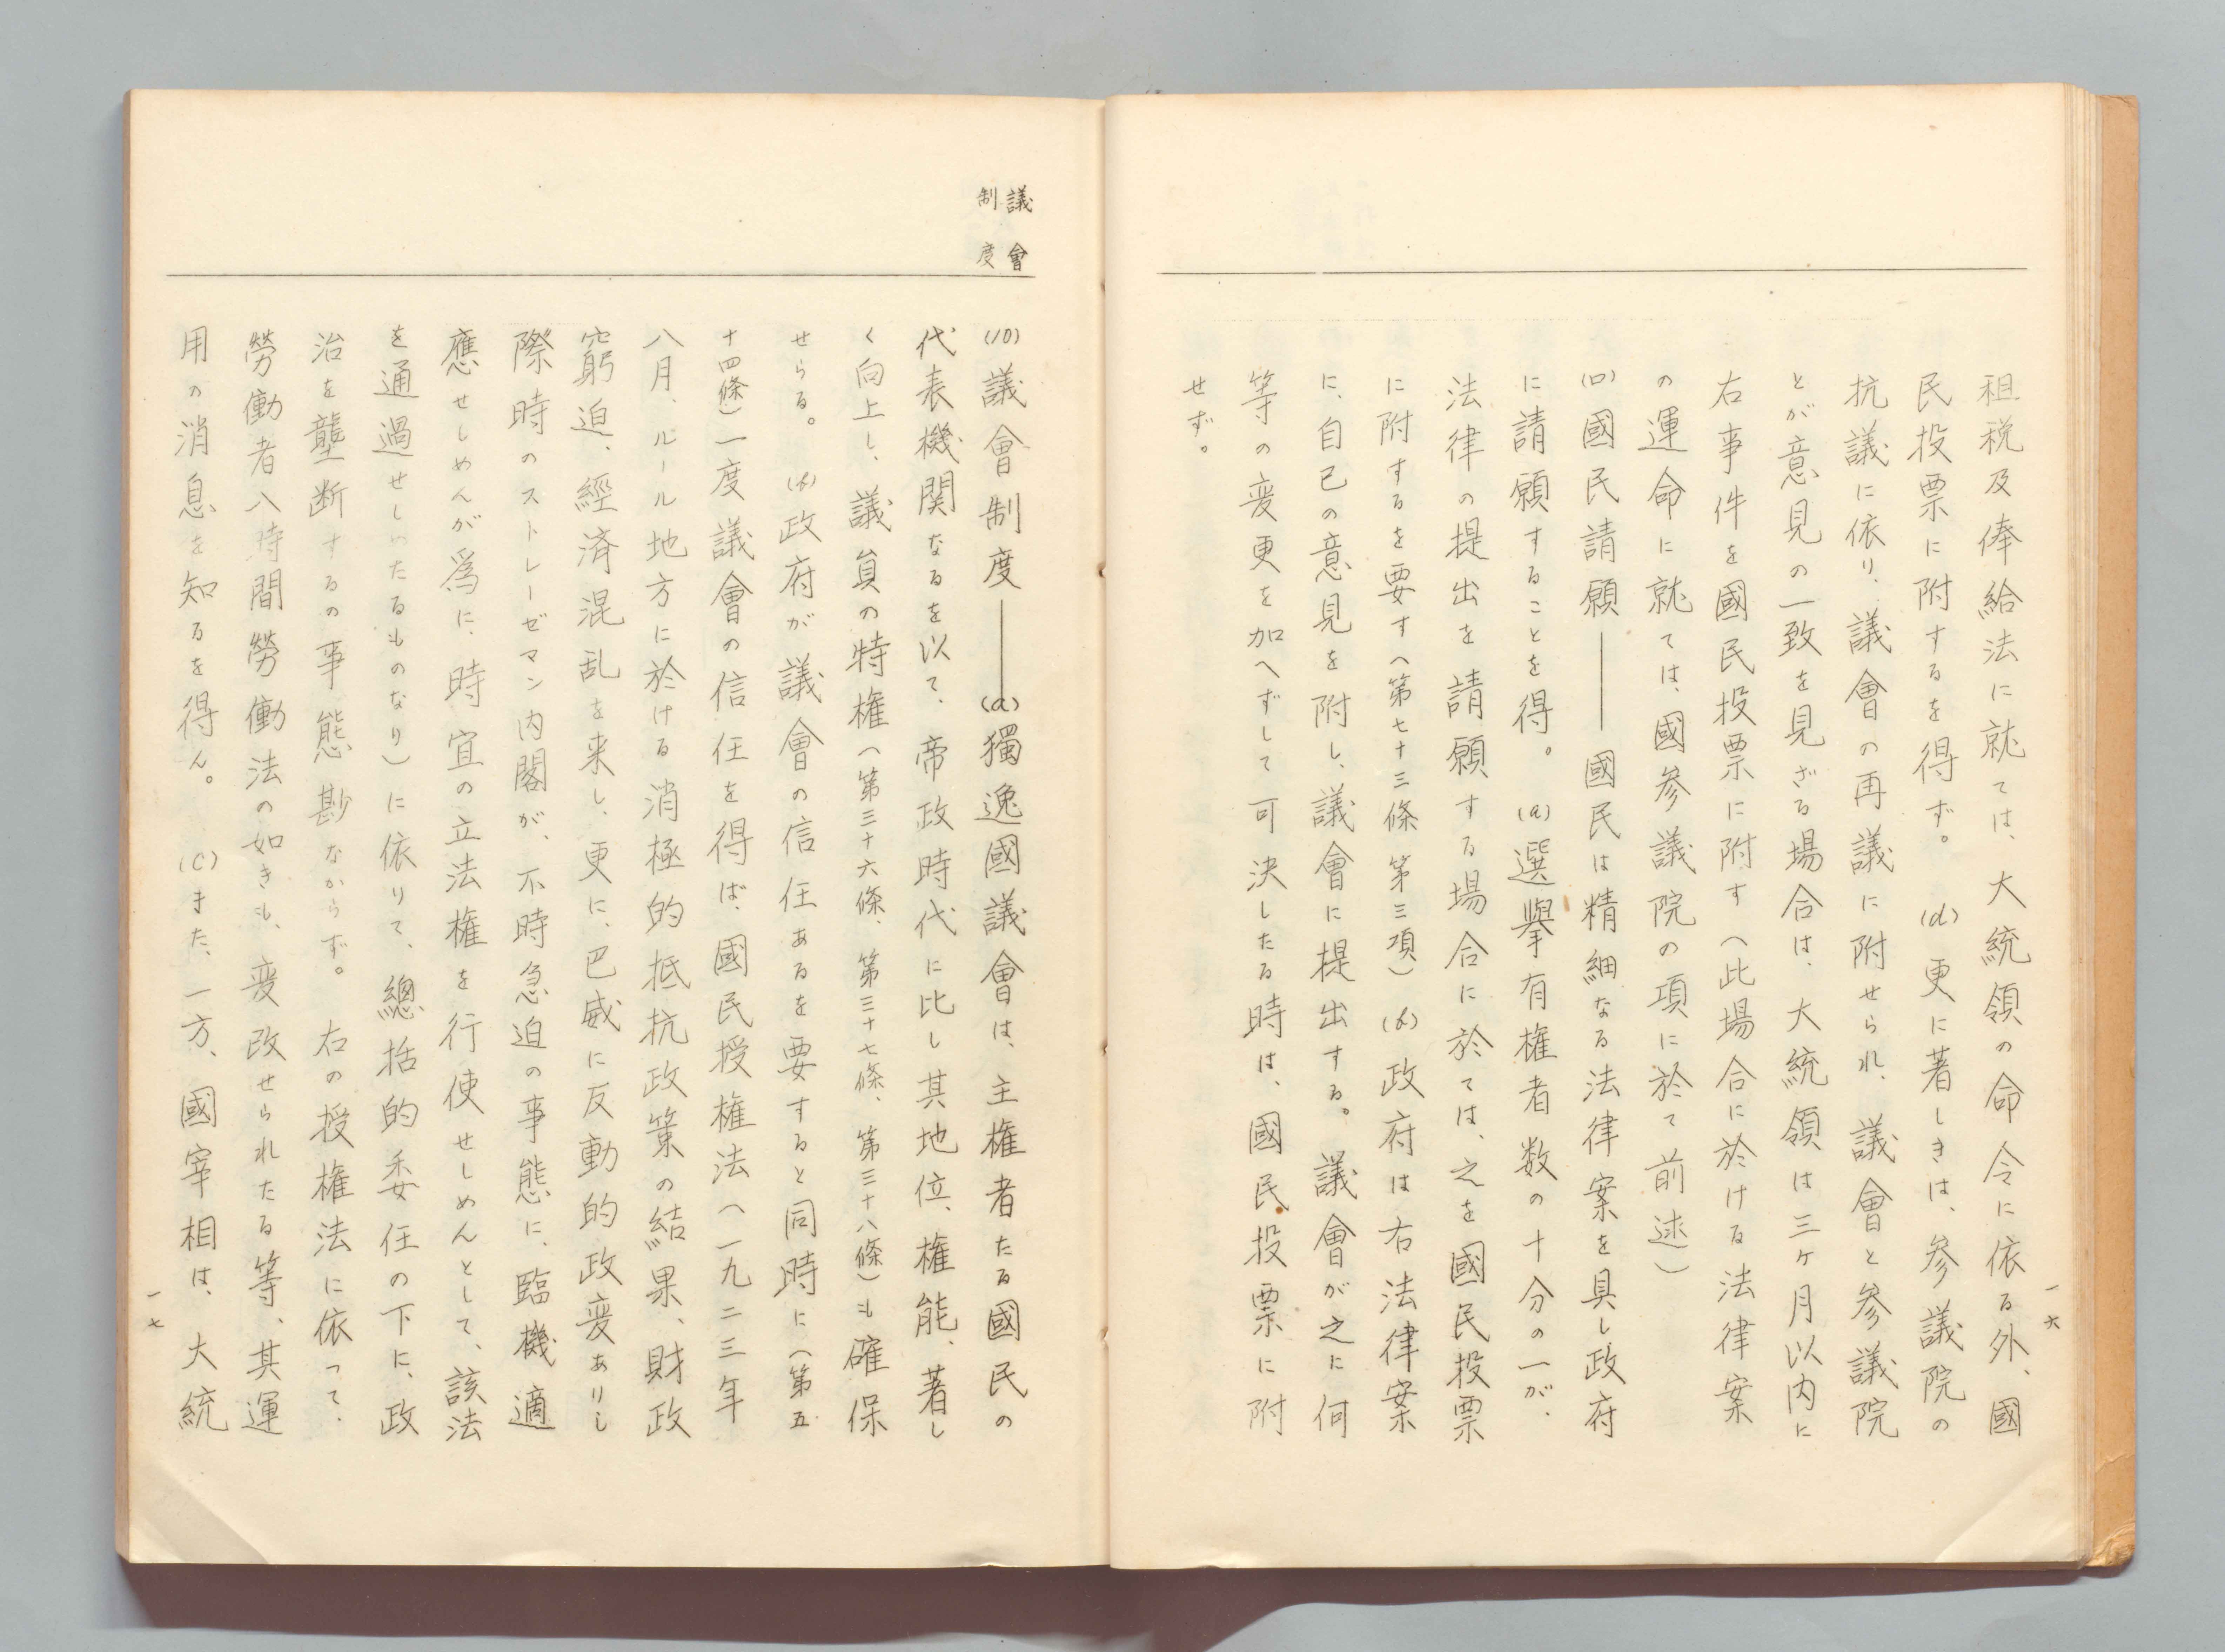 租税及俸給法に就ては、大統領の命令に依る外、國
民投票に附するを得ず。　(d)更に著しきは、参議院の
抗議に依り、議會の再議に附せられ、議會と参議院
とが意見の一致を見ざる場合は、大統領は三ヶ月以内に
右事件を國民投票に附す（此場合に於ける法律案
の運命に就ては、國参議院の項に於て前述）
(ロ)國民請願――國民は精細なる法律案を具し政府
に請願することを得。　(a)選擧有権者数の十分の一が、
法律の提出を請願する場合に於ては、之を國民投票
に附するを要す（第七十三條第三項）(b)政府は右法律案
に、自己の意見を附し、議會に提出する。議會が之に何
等の変更を加へずして可決したる時は、國民投票に附
せず。
一六
議會
制度
(10)議會制度――(a)獨逸國議會は、主権者たる國民の
代表機関なるを以て、帝政時代に比し其地位、権能、著し
く向上し、議員の特権（第三十六條、第三十七條、第三十八條）も確保
せらる。　(b)政府が議會の信任あるを要すると同時に（第五
十四條）一度議會の信任を得ば、國民授権法（一九二三年
八月、ルール地方に於ける消極的抵抗政策の結果、財政
窮迫、經済混乱を来し、更に、巴威に反動的政変ありし
際時のストレーゼマン内閣が、不時急迫の事態に、臨機適
應せしめんが爲に、時宜の立法権を行使せしめんとして、該法
を通過せしいたるものなり）に依りて、總括的委任の下に、政
治を壟断するの事態尠なからず。　右の授権法に依って、
勞働者八時間勞働法の如きも、変改せられたる等、其運
用の消息を知るを得ん。　(C)また、一方、國宰相は、大統
一七